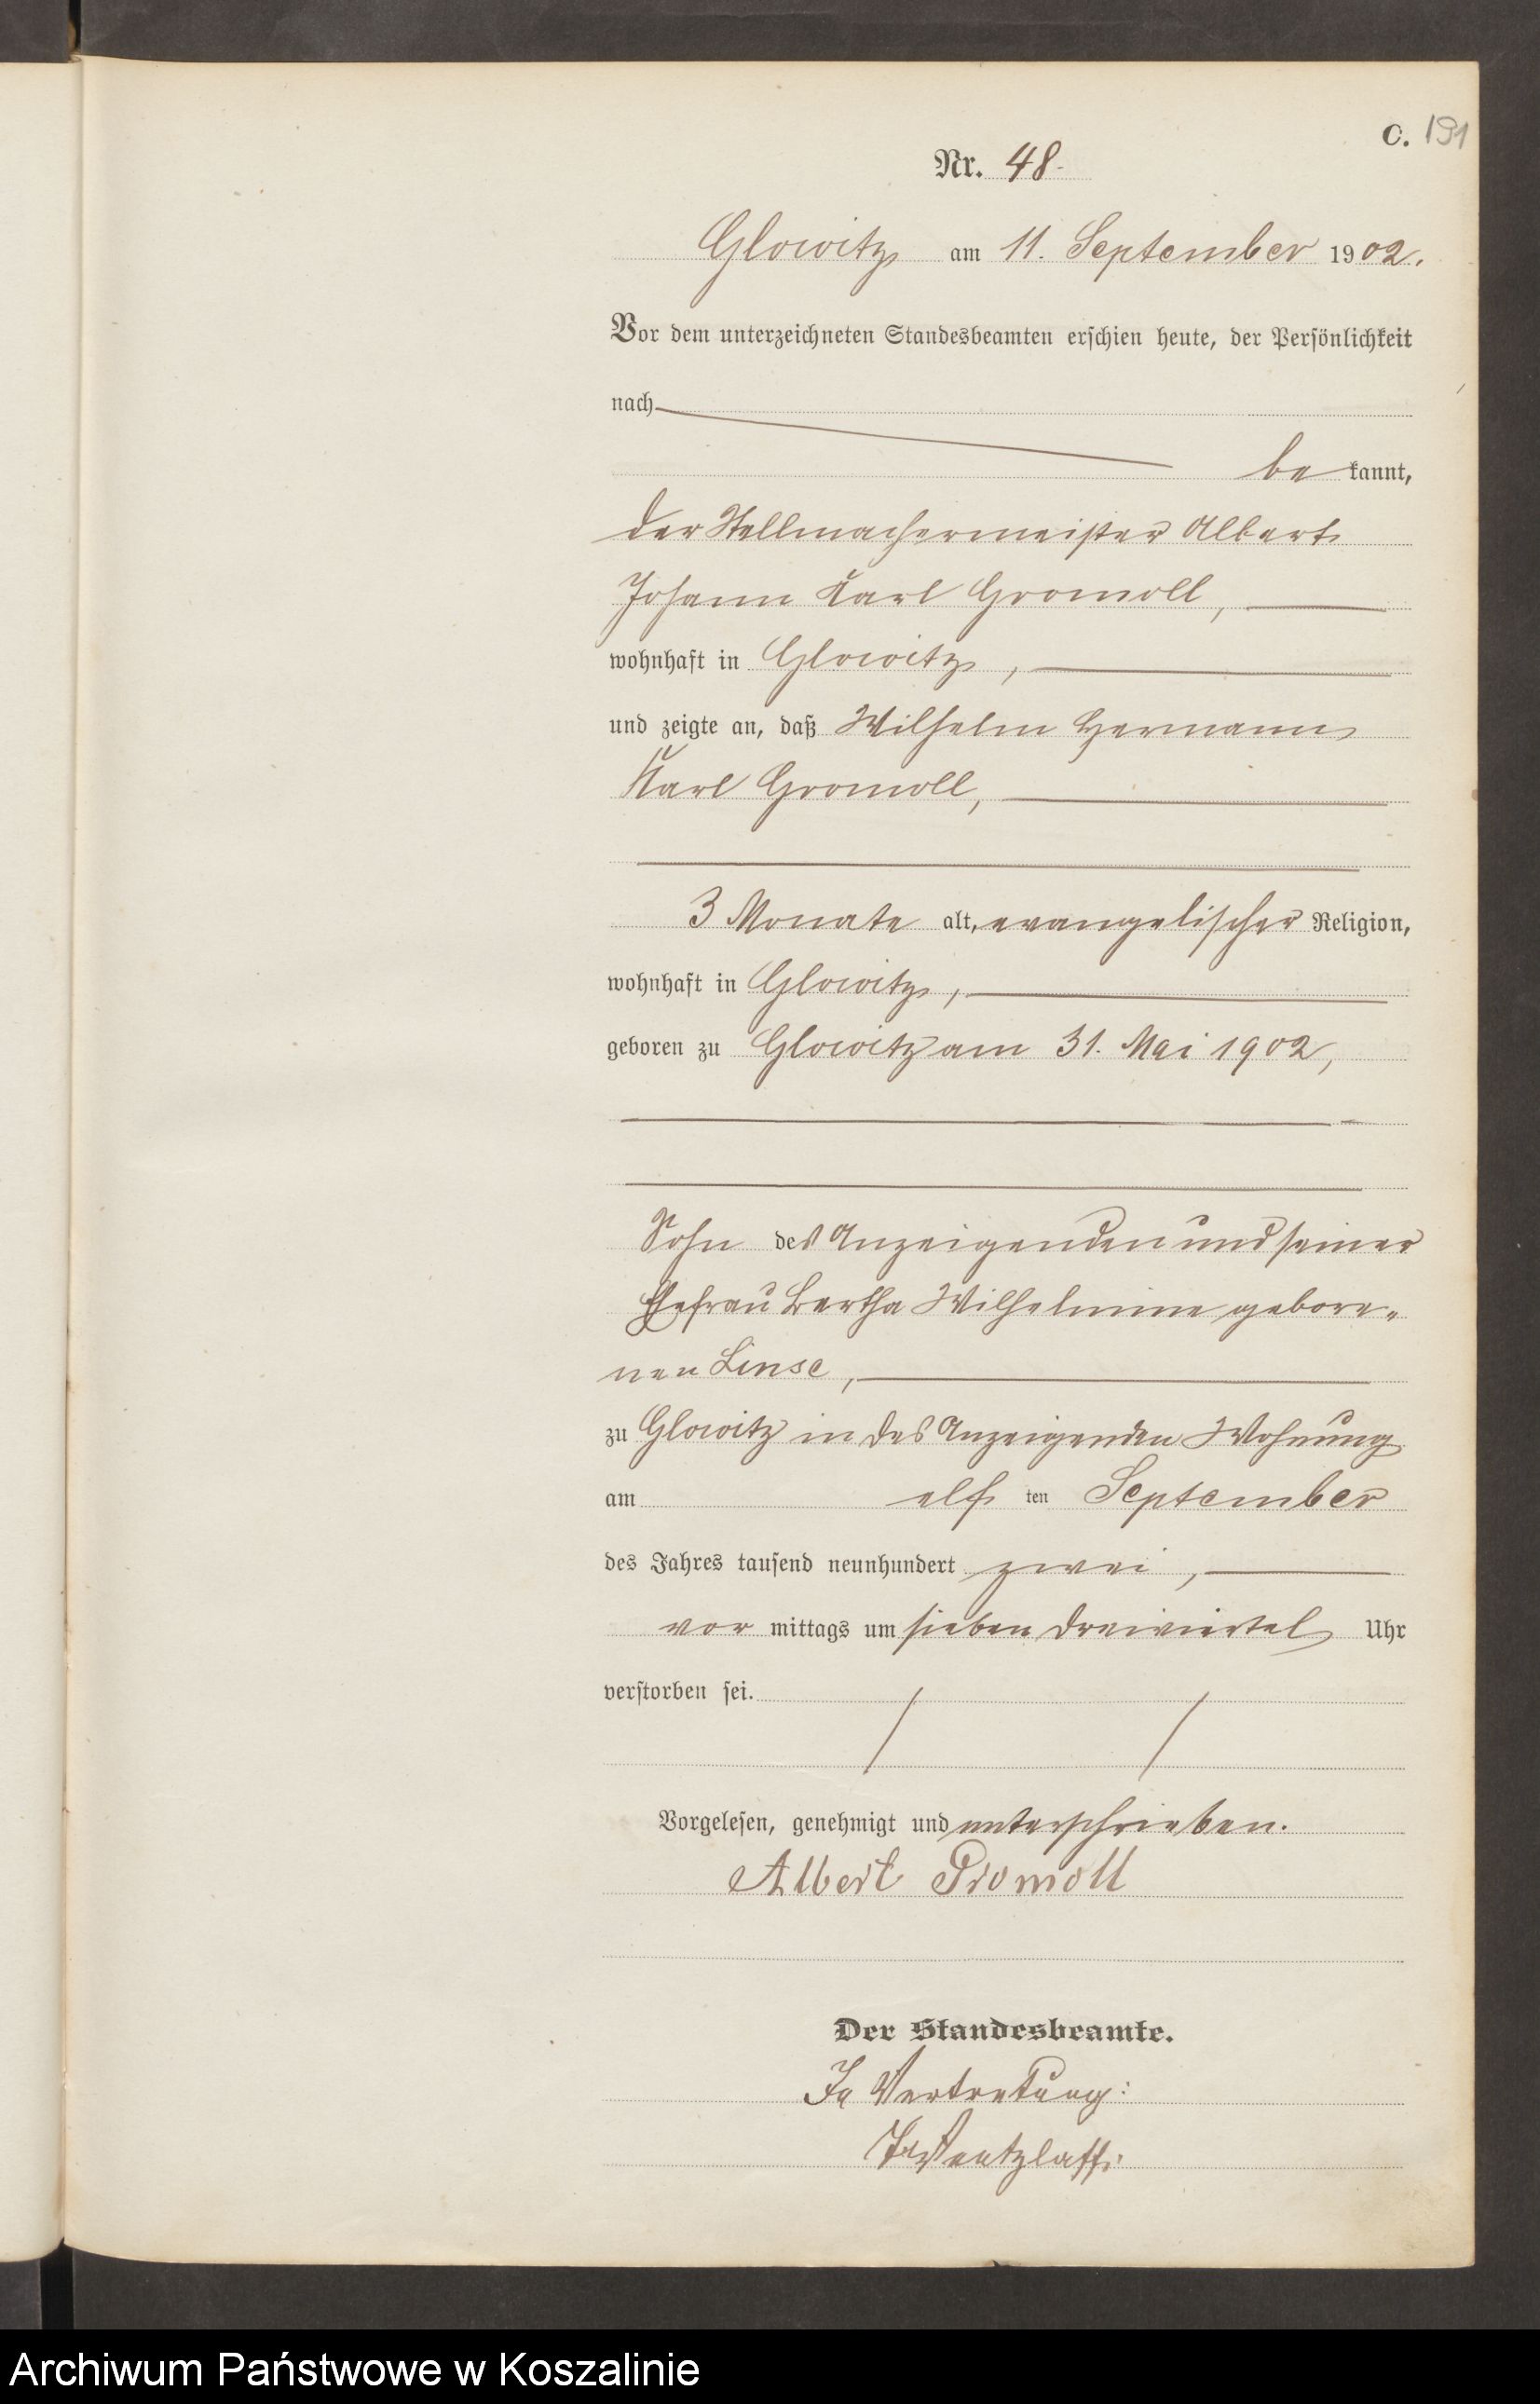 C. 191
Nr. 48.
Glowitz am 11. September 1902.
Vor dem unterzeichneten Standesbeamten erschien heute, der Persönlichkeit
nach
bekannt,
der Stellmachermeister Albert
Johann Karl Gromoll,
wohnhaft in Glowitz,
und zeigte an, daß Wilhelm Hermann
Karl Gromoll,
3 Monate alt, evangelischer Religion,
wohnhaft in Glowitz,
geboren zu Glowitz am 31. Mai 1902,
Sohn des Anzeigenden und seiner
Ehefrau Bertha Wilhelmine gebore-
nen Linse,
zu Glowitz in des Anzeigenden Wohnung
am elften September
des Jahres tausend neunhundert zwei,
vormittags um sieben dreiviertel Uhr
verstorben sei.
Vorgelesen, genehmigt und unterschrieben.
Albert Gromoll
Der Standesbeamte.
In Vertretung:
Wentzlaff.
Archiwum Państwowe w Koszalinie